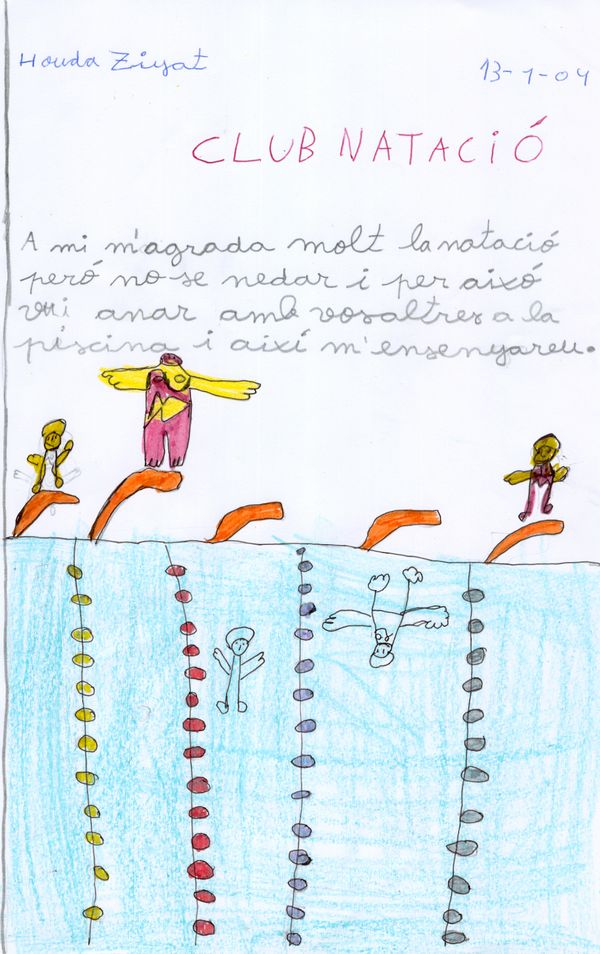 Houda Ziyat
13-1-04
CLUB NATACIÓ
A mi m'agrada molt la natació
peró no se nedar i per aixó
vui anar amb vosaltres a la
piscina i així m'ensenyareu.